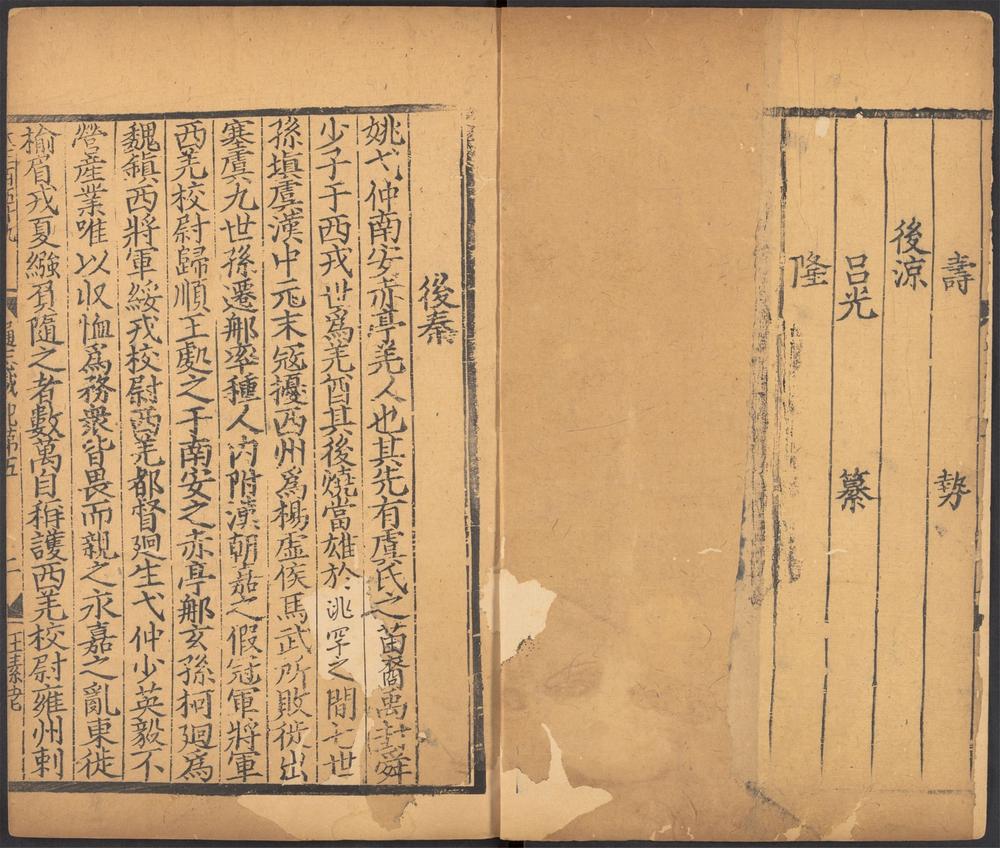 壽　勢
後涼
呂光　纂
隆
後秦
姚弋仲南安赤亭羌人也其先有虞氏之苗裔禹封舜
少子于西戎世爲羌酋其後燒當雄於洮罕之間七世
孫塡虞漢中元末寇擾西州爲楊虛侯馬武所敗徙出
塞虞九世孫遷郍率種人內附漢朝嘉之假冠軍將軍
西羌校尉歸順王處之于南安之赤亭郍玄孫柯廻爲
魏鎮西將軍綏戎校尉西羌都督廻生弋仲少英毅不
營產業唯以收恤爲務衆皆畏而親之永嘉之亂東徙
榆眉戎夏繈負隨之者數萬自稱護西羌校尉雍州刺
通志載記第五
二